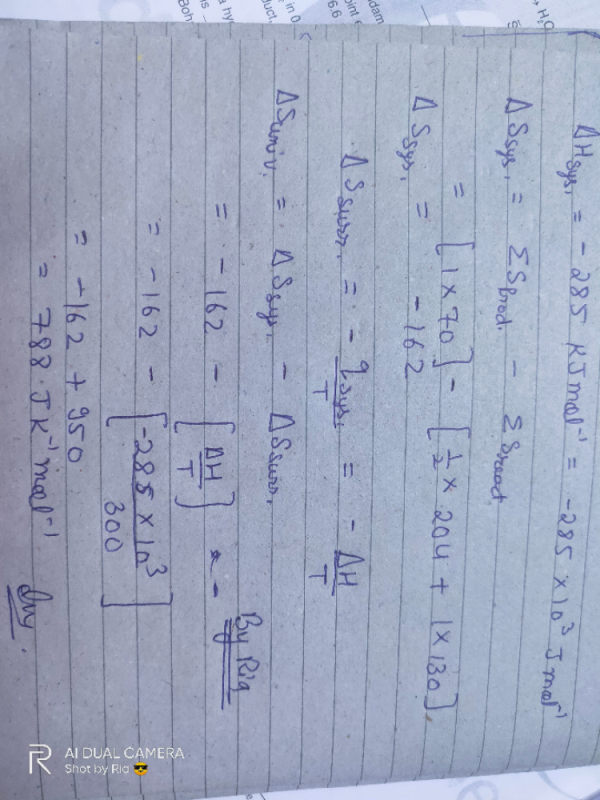 ΔHsys. = -285 KJmol⁻¹ = -285 × 10³ Jmol⁻¹
ΔSsys. = ΣSprod. - ΣSreact
= [1 × 70] - [1/2 × 204 + 1 × 130].
ΔSsys. = -162
ΔSsurr. = - qsys./T = - ΔH/T
ΔSuniv. = ΔSsys. - ΔSsurr.
= -162 - [ΔH/T]
By Ria
= -162 - [-285 × 10³/300]
= -162 + 950
= 788 JK⁻¹mol⁻¹
AI DUAL CAMERA
Shot by Ria 😎